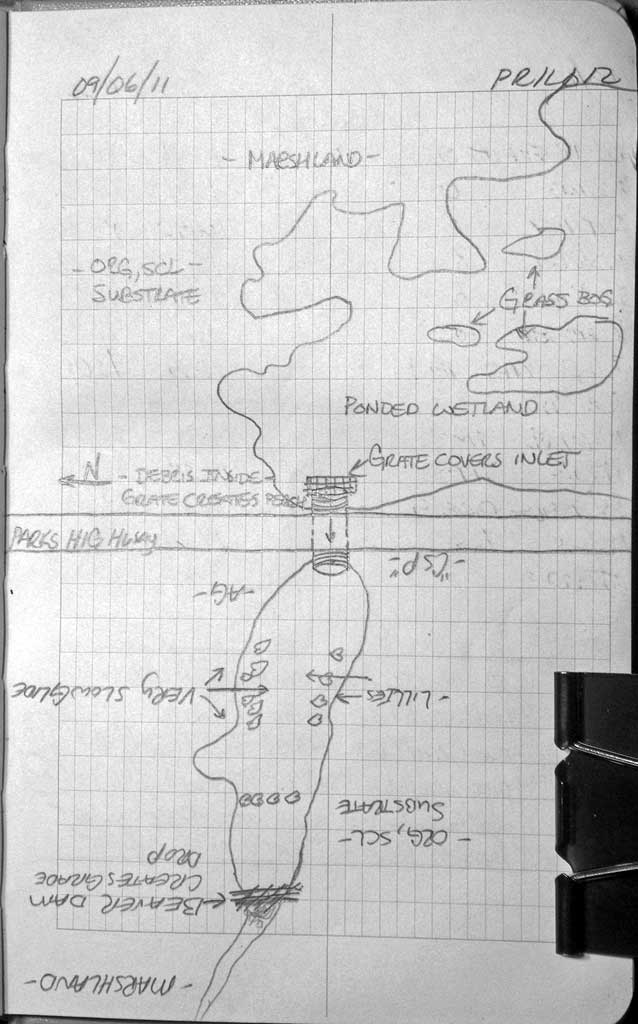 09/06/11
- MARSHLAND -
- ORG, SCL -
SUBSTRATE
GRASS BOG
PONDED WETLAND
N
GRATE COVERS INLET
- DEBRIS INSIDE -
GRATE CREATES PERCH
PARKS HIGHWAY
- "CSP"
- AG -
VERY SLOW GLIDE
- LILLIES
- ORG, SCL -
SUBSTRATE
BEAVER DAM
CREATES GRADE
DROP
- MARSHLAND -